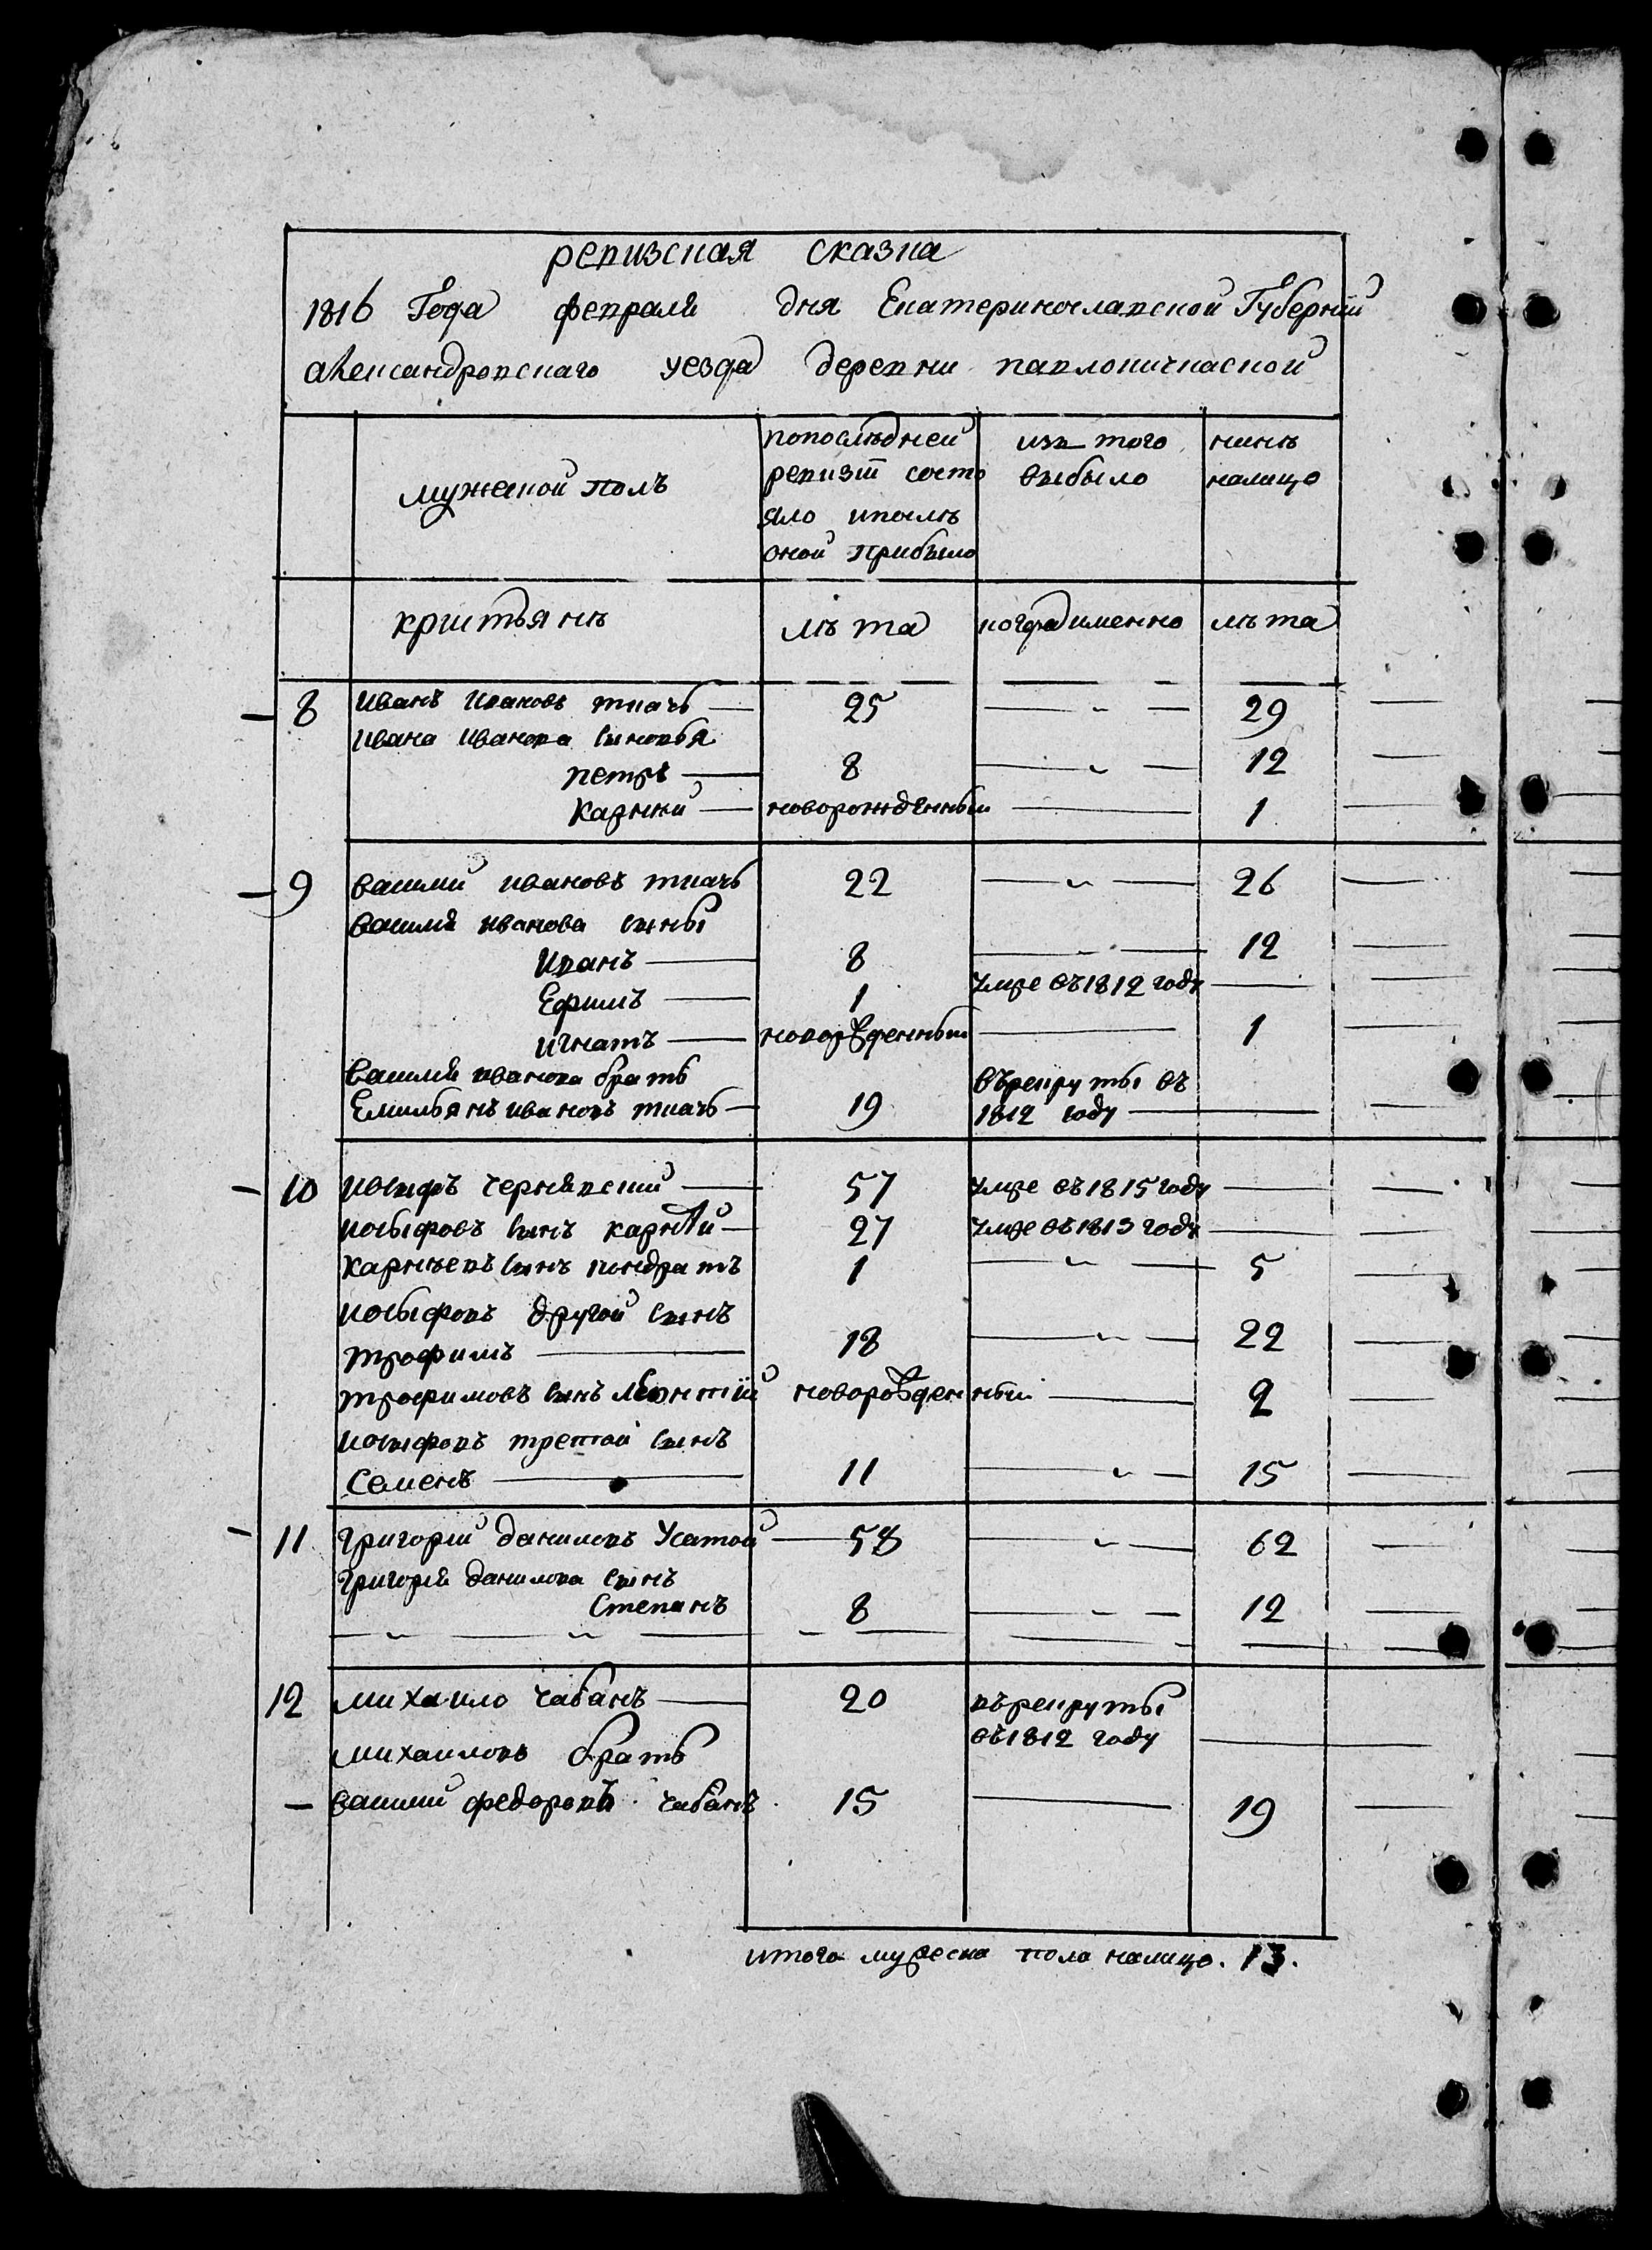 ревизская сказка
1816 Года февраля дня Екатеринославской Губернїи
александровскаго уезда деревни павловичкаской
мужеской полъ
попоследней ревизїи состояло ипослѣ оной прибыло
изъ того выбыло
нинѣ налицо
криштьянѣ
лѣта
когда именно
лѣта
8 иванъ ивановъ ткачь 25 29
ивана иванова синовья
петръ 8 12
Карнии новорожденный 1
9 василий ивановъ ткачь 22 26
василия иванова сыны
иванъ 8 12
Ефимъ 1 умре въ 1812 году
игнатъ новорожденный 1
василия иванова братъ
Емильянъ ивановъ ткачь 19 въ рекруты въ
1812 году
10 иосифъ чернявский 57 умре въ 1815 году
иосыфовъ сынъ карнѣй 27 умре въ 1813 году
карнѣевъ сынъ кондратъ 1 5
иосыфовъ другой сынъ
трофимъ 18 22
трофимовъ сынъ леонтїй новорожденный 2
иосыфовъ третой сынъ
Семенъ 11 15
11 григорий даниловъ Усатой 58 62
григория данилова сынъ
Степанъ 8 12
12 михаило чабанъ 20 въ рекруты
въ 1812 году
михаиловъ братъ
василий федоровъ чабанъ 15 19
итого мужеска пола налицо. 13.